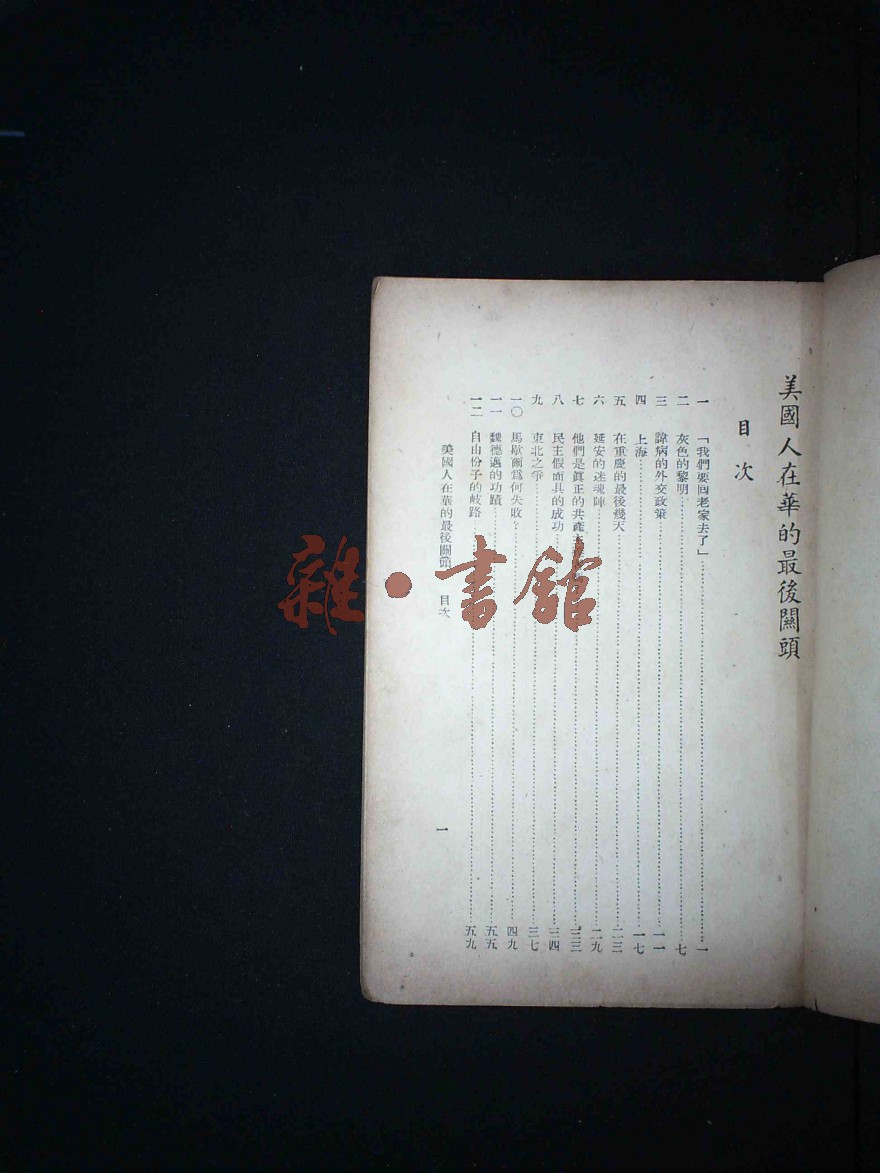 美國人在華的最後關頭
目次
一 「我們要回老家去了」 一
二 灰色的黎明 七
三 諱病的外交政策 一一
四 上海 一七
五 在重慶的最後幾天 二三
六 延安的迷魂陣 二九
七 他們是眞正的共產 三三
八 民主假面具的成功 三四
九 東北之爭 三七
一〇 馬歇爾爲何失敗？ 四九
一一 魏德邁的功蹟 五五
一二 自由份子的歧路 五九
美國人在華的最後關頭 目次
一
雜·書館